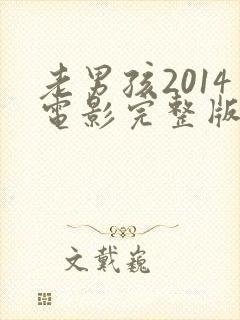 老男孩2014
电影完整版
文戴巍